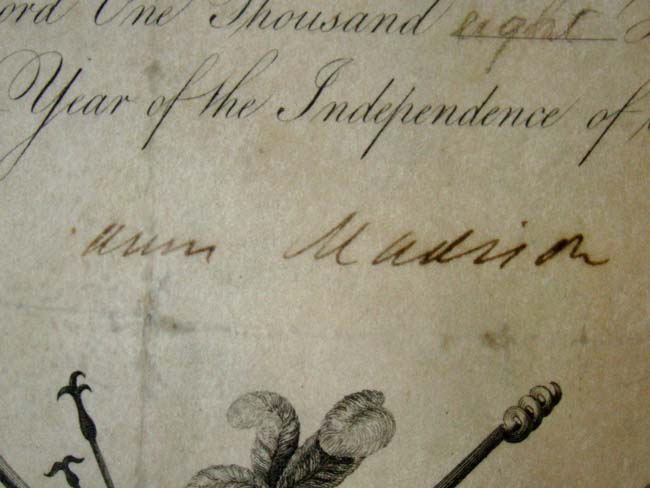 ord One Thousand eight
Year of the Independence of
Madison